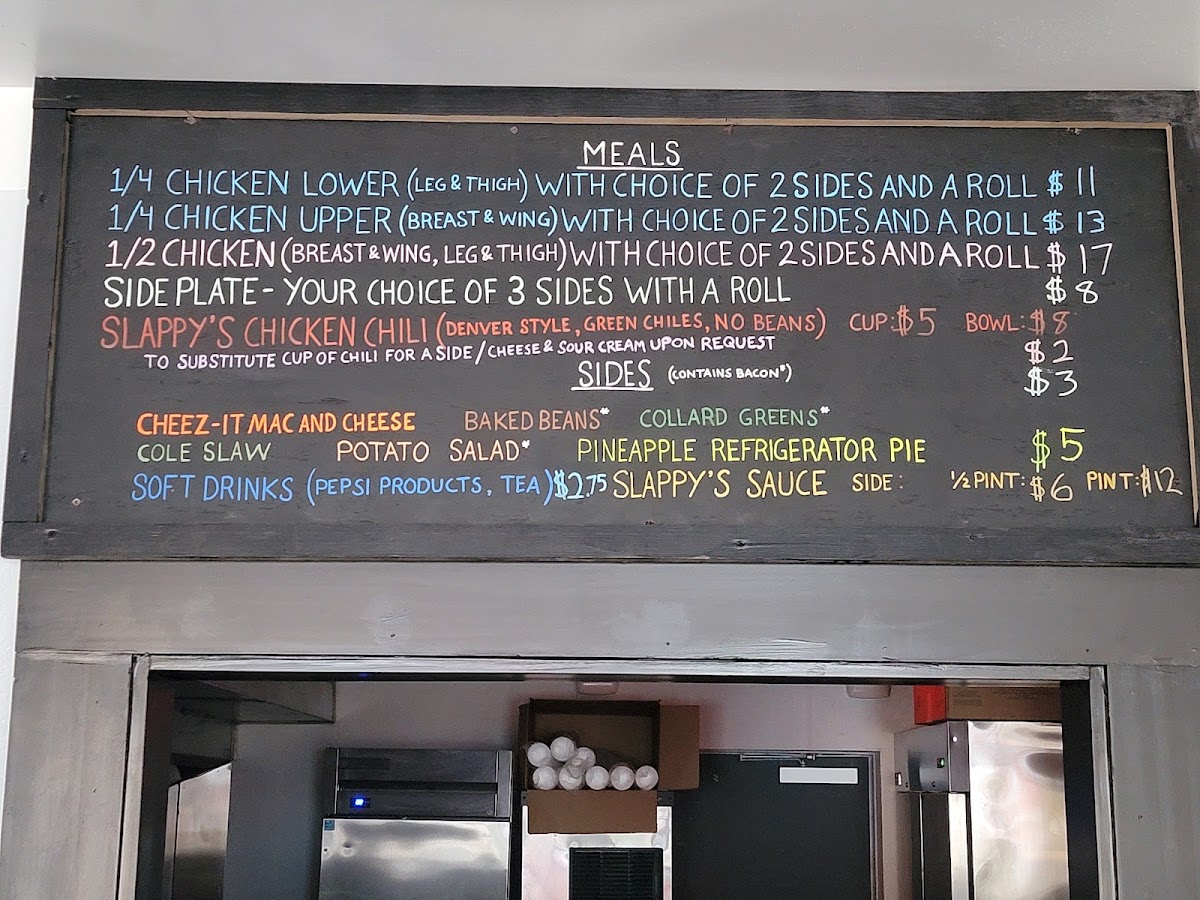 MEALS
1/4 CHICKEN LOWER (LEG & THIGH) WITH CHOICE OF 2 SIDES AND A ROLL $ 11
1/4 CHICKEN UPPER (BREAST & WING) WITH CHOICE OF 2 SIDES AND A ROLL $ 13
1/2 CHICKEN (BREAST & WING, LEG & THIGH) WITH CHOICE OF 2 SIDES AND A ROLL $ 17
SIDE PLATE - YOUR CHOICE OF 3 SIDES WITH A ROLL $ 8
SLAPPY'S CHICKEN CHILI (DENVER STYLE, GREEN CHILES, NO BEANS) CUP: $5 BOWL: $8
TO SUBSTITUTE CUP OF CHILI FOR A SIDE / CHEESE & SOUR CREAM UPON REQUEST $2
SIDES (CONTAINS BACON*) $3
CHEEZ-IT MAC AND CHEESE BAKED BEANS* COLLARD GREENS*
COLE SLAW POTATO SALAD* PINEAPPLE REFRIGERATOR PIE $5
SOFT DRINKS (PEPSI PRODUCTS, TEA) $2.75 SLAPPY'S SAUCE SIDE: 1/2 PINT: $6 PINT: $12